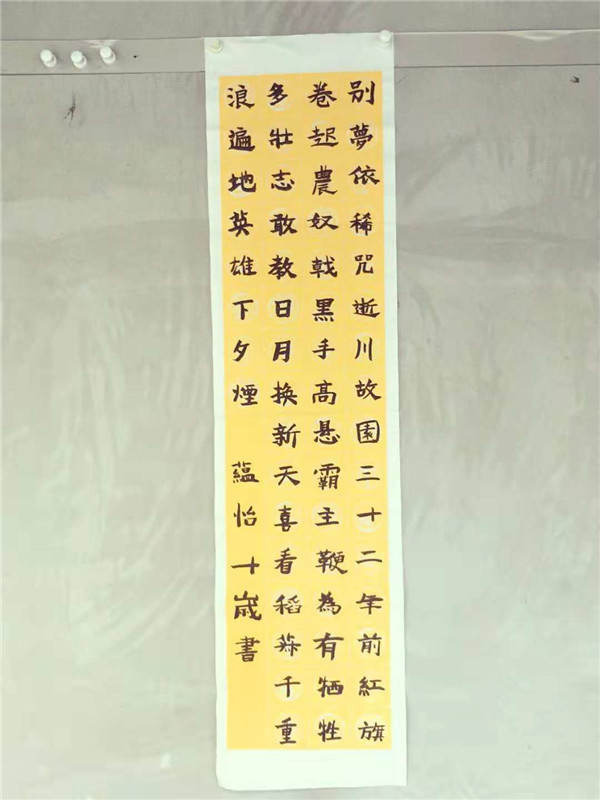 別夢依稀咒逝川故園三十二年前紅旗
卷起農奴戟黑手高悬霸主鞭為有牺牲
多壮志敢教日月换新天喜看稻菽千重
浪遍地英雄下夕煙 蕴怡十歲書